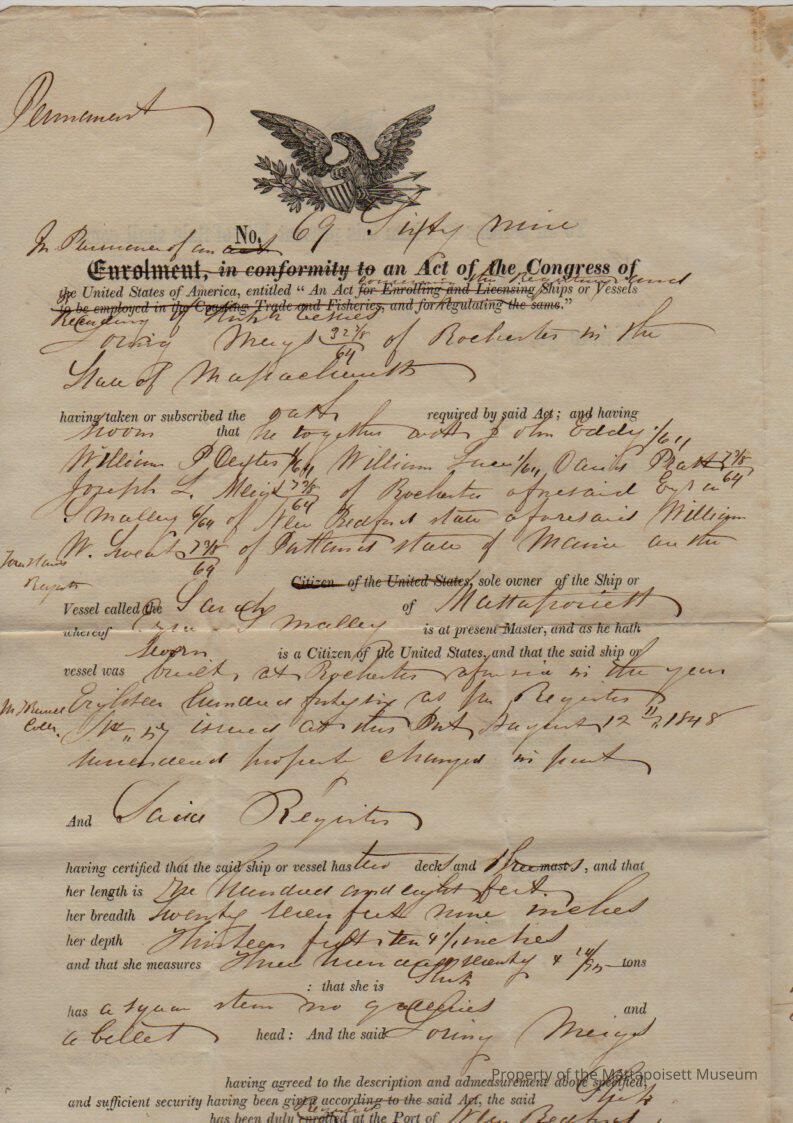 Permanent
No. 69 Sixty nine
In Permanent of an act
Enrolment, in conformity to an Act of the Congress of
the United States of America, entitled “ An Act for Enrolling and Licensing Ships or Vessels
to be employed in the Coasting Trade and Fisheries, and for regulating the same.”
Recording of Ships or Vessels
Loring Meigs 32 7/8/64 of Rochester in the
State of Massachusetts
having taken or subscribed the oath required by said Act; and having
sworn that he together with John Eddy 1/64
William P Dexter 1/64 William 1/64 David Pratt 7 7/8/64
Joseph L. Meigs 7 7/8/64 of Rochester aforesaid Ezra
Smalley 6/64 of New Bedford state aforesaid William
W. 7 7/8/64 of Portland state of Maine are the
Citizen of the United States, sole owner of the Ship or
Vessel called the Sarah of Mattapoisett
whereof Ezra Smalley is at present Master, and as he hath
sworn is a Citizen of the United States, and that the said ship or
vessel was built at Rochester aforesaid in the year
Eighteen hundred forty six as per Register
issued at this Port August 12th 1848
surrendered property changed in part
And Said Register
having certified that the said ship or vessel has two decks and three masts, and that
her length is One hundred and eight feet
her breadth twenty seven feet nine inches
her depth Thirteen feet ten & 1/2 inches
and that she measures Three hundred seventy & /95 tons
: that she is Ship
has a square stern no galleries and
a billet head: And the said Loring Meigs
having agreed to the description and admeasurement above specified,
and sufficient security having been given according to the said Act, the said Ship
has been duly enrolled at the Port of New Bedford
Property of the Mattapoisett Museum